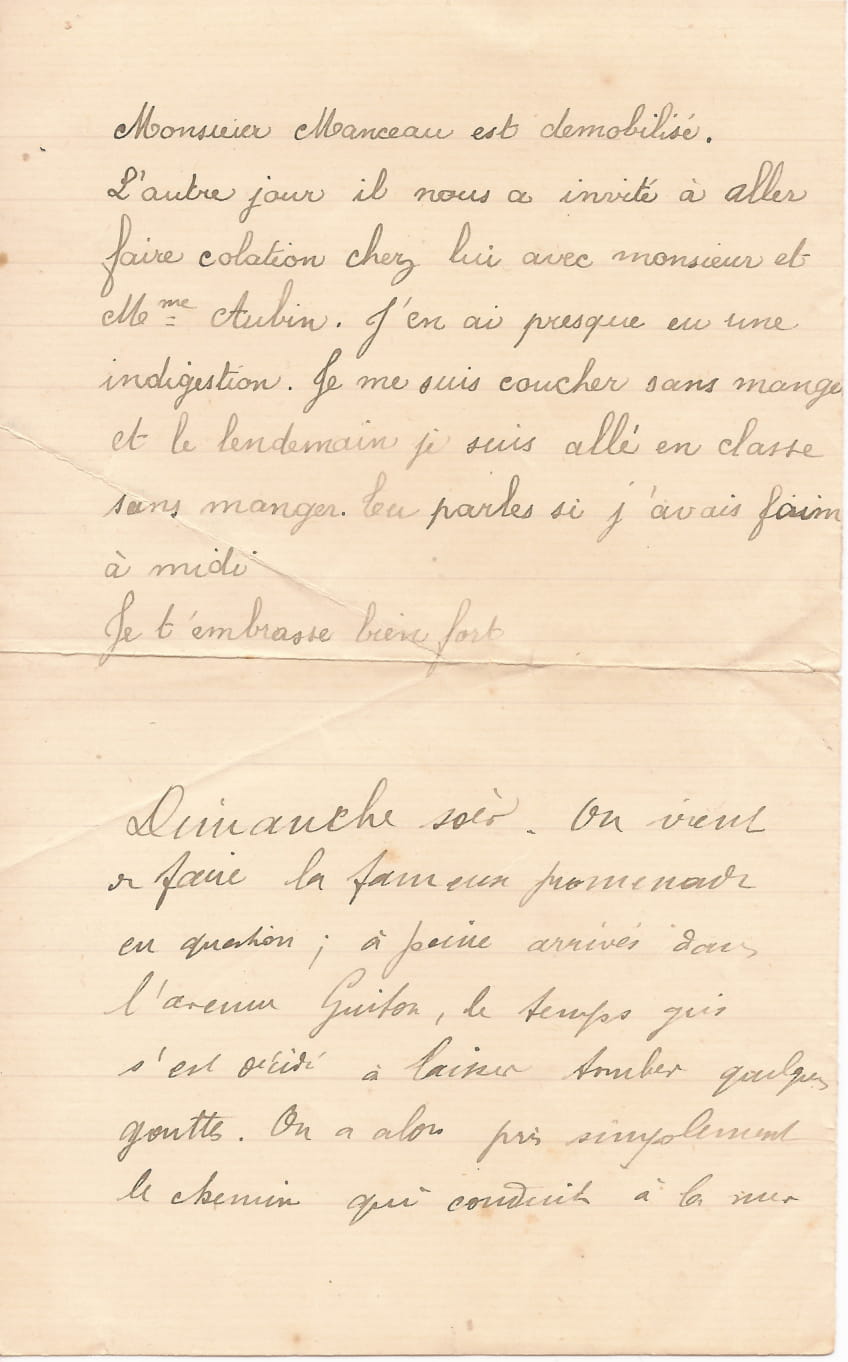 Monsieur Manceau est demobilisé.
L'autre jour il nous a invité à aller
faire colation chez lui avec monsieur et
Mme Aubin. J'en ai presque eu une
indigestion. Je me suis coucher sans mange
et le lendemain je suis allé en classe
sans manger. Tu parles si j'avais faim
à midi
Je t'embrasse bien fort
Dimanche soir. On vient
de faire la fameuse promenade
en question ; à peine arrivés dans
l'avenue Guiton, le temps gris
s'est décidé à laisser tomber quelques
gouttes. On a alors pris simplement
le chemin qui conduit à la mer